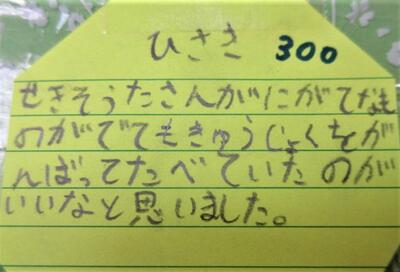 ひさき 300
せきそうたさんがにがてなも
のがでてもきゅうしょくをが
んばってたべていたのが
いいなと思いました。